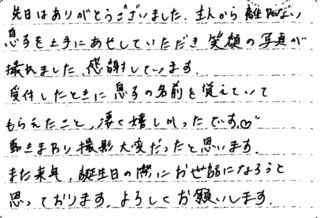 先日はありがとうございました。主人から離れない
息子を上手にあやしていただき笑顔の写真が
撮れました。感謝しています。
受付したときに息子の名前を覚えていて
もらえたこと、凄く嬉しかったです♡
動きまわり撮影大変だったと思います。
また来年、誕生日の際にお世話になろうと
思っております。よろしくお願いします。